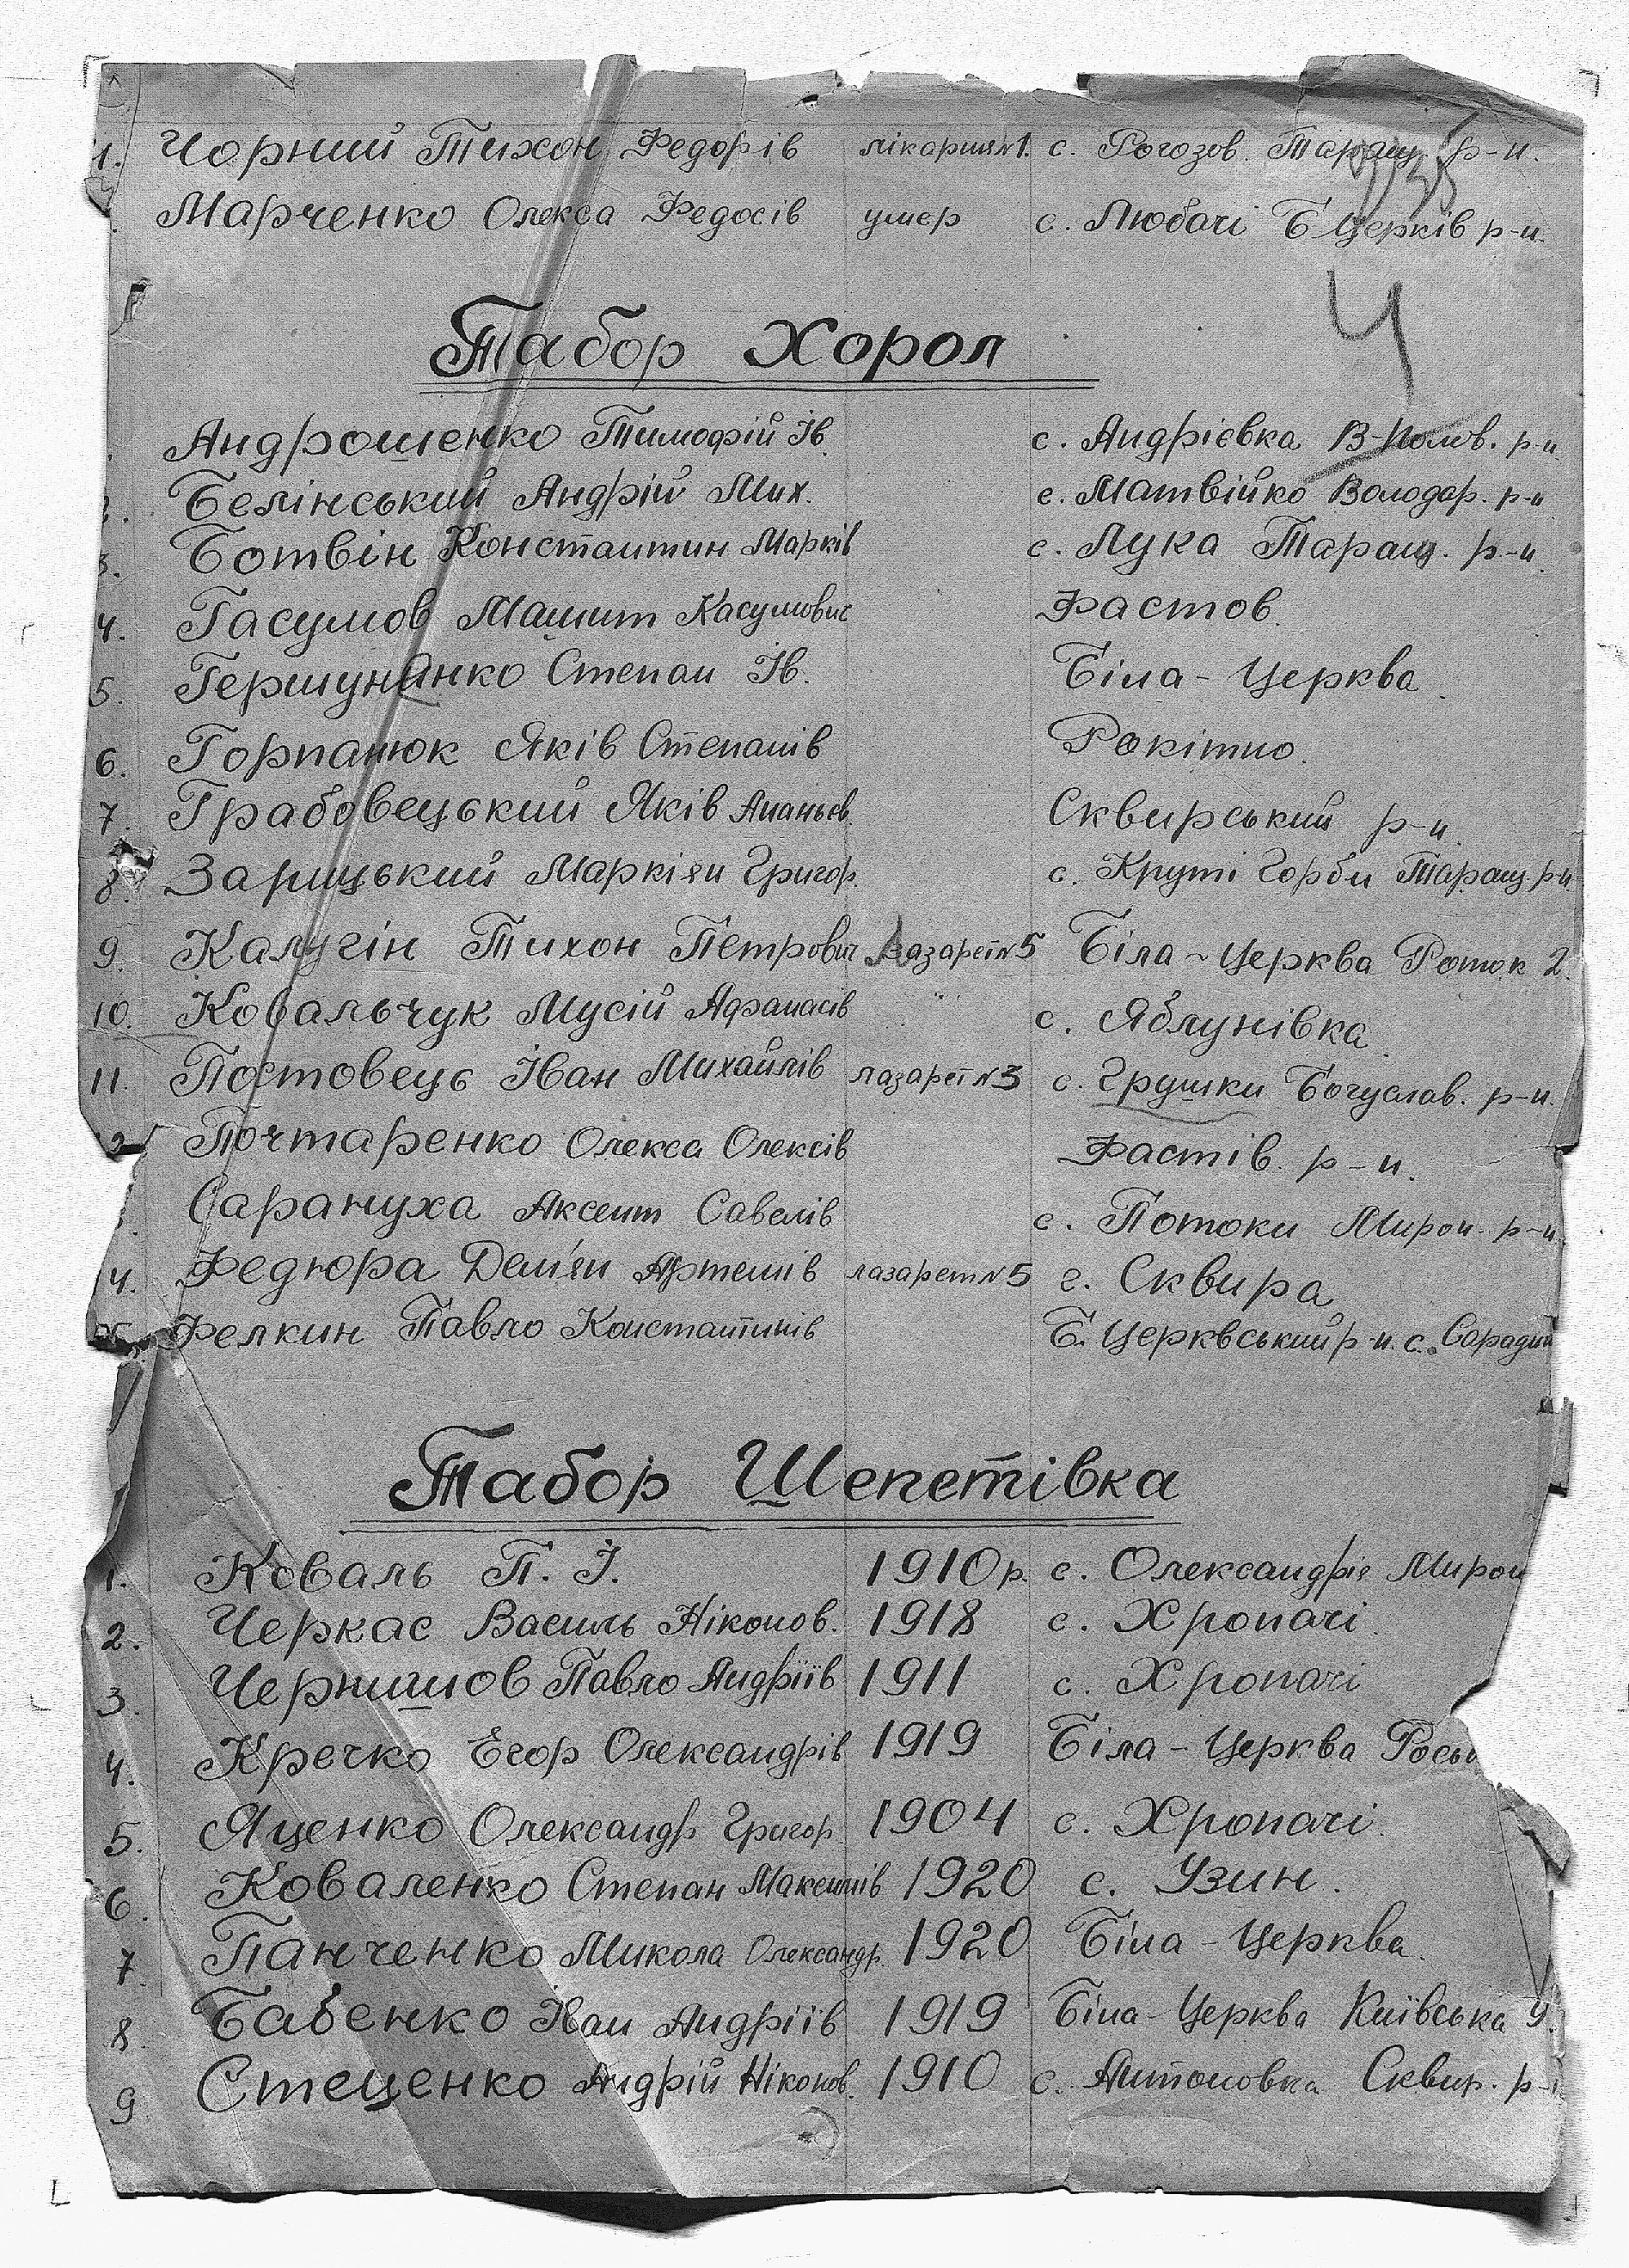 1. Чорний Тихон Федорів лікарня №1. с. Рогозов. Таращ. р-н.
Марченко Олекса Федосів умер с. Любачі Б Церків р-н.
4
Табор Хорол
Андрошенко Тимофій Ів. с. Андрієвка В-Полов. р-н
Белінський Андрій Мих. с. Матвійко Володар. р-н
3. Ботвін Константин Марків с. Лука Таращ. р-н
4. Гасумов Машит Касумович Фастов.
5. Гершунанко Степан Ів. Біла-Церква.
6. Горпанюк Яків Степанів Рокітно.
7. Грабовецький Яків Ананьєв. Сквирський р-н.
8. Зарицький Маркіян Григор. с. Круті Горби Таращ. р-н
9. Калугін Тихон Петрович Лазарет №5 Біла-Церква Роток 2.
10. Ковальчук Мусій Афанасів с. Яблунівка.
11. Постовець Іван Михайлів лазарет №3 с. Грушки Богуслав. р-н.
2 Почтаренко Олекса Олексів Фастів. р-н.
Сарануха Аксент Савелів с. Потоки Мирон. р-н
4. Федюра Дем'ян Артемів лазарет №5 г. Сквира
Фелкин Павло Константинів Б. Церквський р-н. с.
Табор Шепетівка
1. Коваль П. І. 1910 р. с. Олександріє Мирон
2. Черкас Василь Ніконов. 1918 с. Хропачі.
3. Чернишов Павло Андріїв 1911 с. Хропачі
4. Кречко Егор Олександрів 1919 Біла-Церква
5. Яценко Олександр Григор. 1904 с. Хропачі.
6. Коваленко Степан Максимів 1920 с. Узин.
7. Панченко Микола Олександр. 1920 Біла-Церква.
8 Бабенко Іван Андріїв 1919 Біла-Церква Київська 9.
9 Стеценко Андрій Ніконов. 1910 с. Антоновка Сквир. р-н